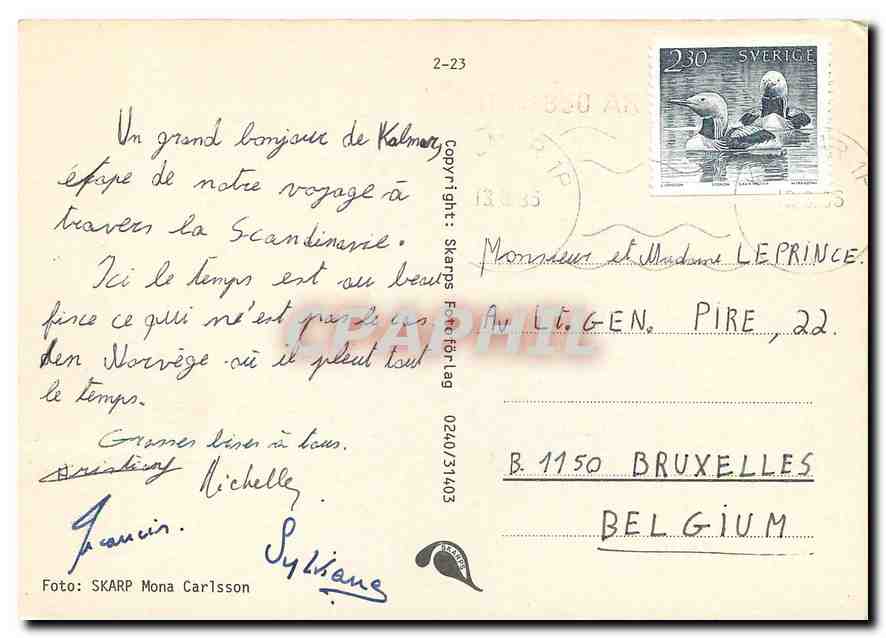 2-23
Un grand bonjour de Kalmar,
étape de notre voyage à
travers la Scandinavie.
Ici le temps est au beau
fixe ce qui n'est pas le cas
en Norvège où il pleut tout
le temps.
Grosses bises à tous.
Christian
Michelle
Francis.
Sylviane
Foto: SKARP Mona Carlsson
Copyright: Skarps Fotoförlag 0240/31403
SKARPS
2.30 SVERIGE
850 ÅR
CPAPHIL
Monsieur et Madame LEPRINCE.
Av Lt. GEN. PIRE, 22.
B. 1150 BRUXELLES
BELGIUM